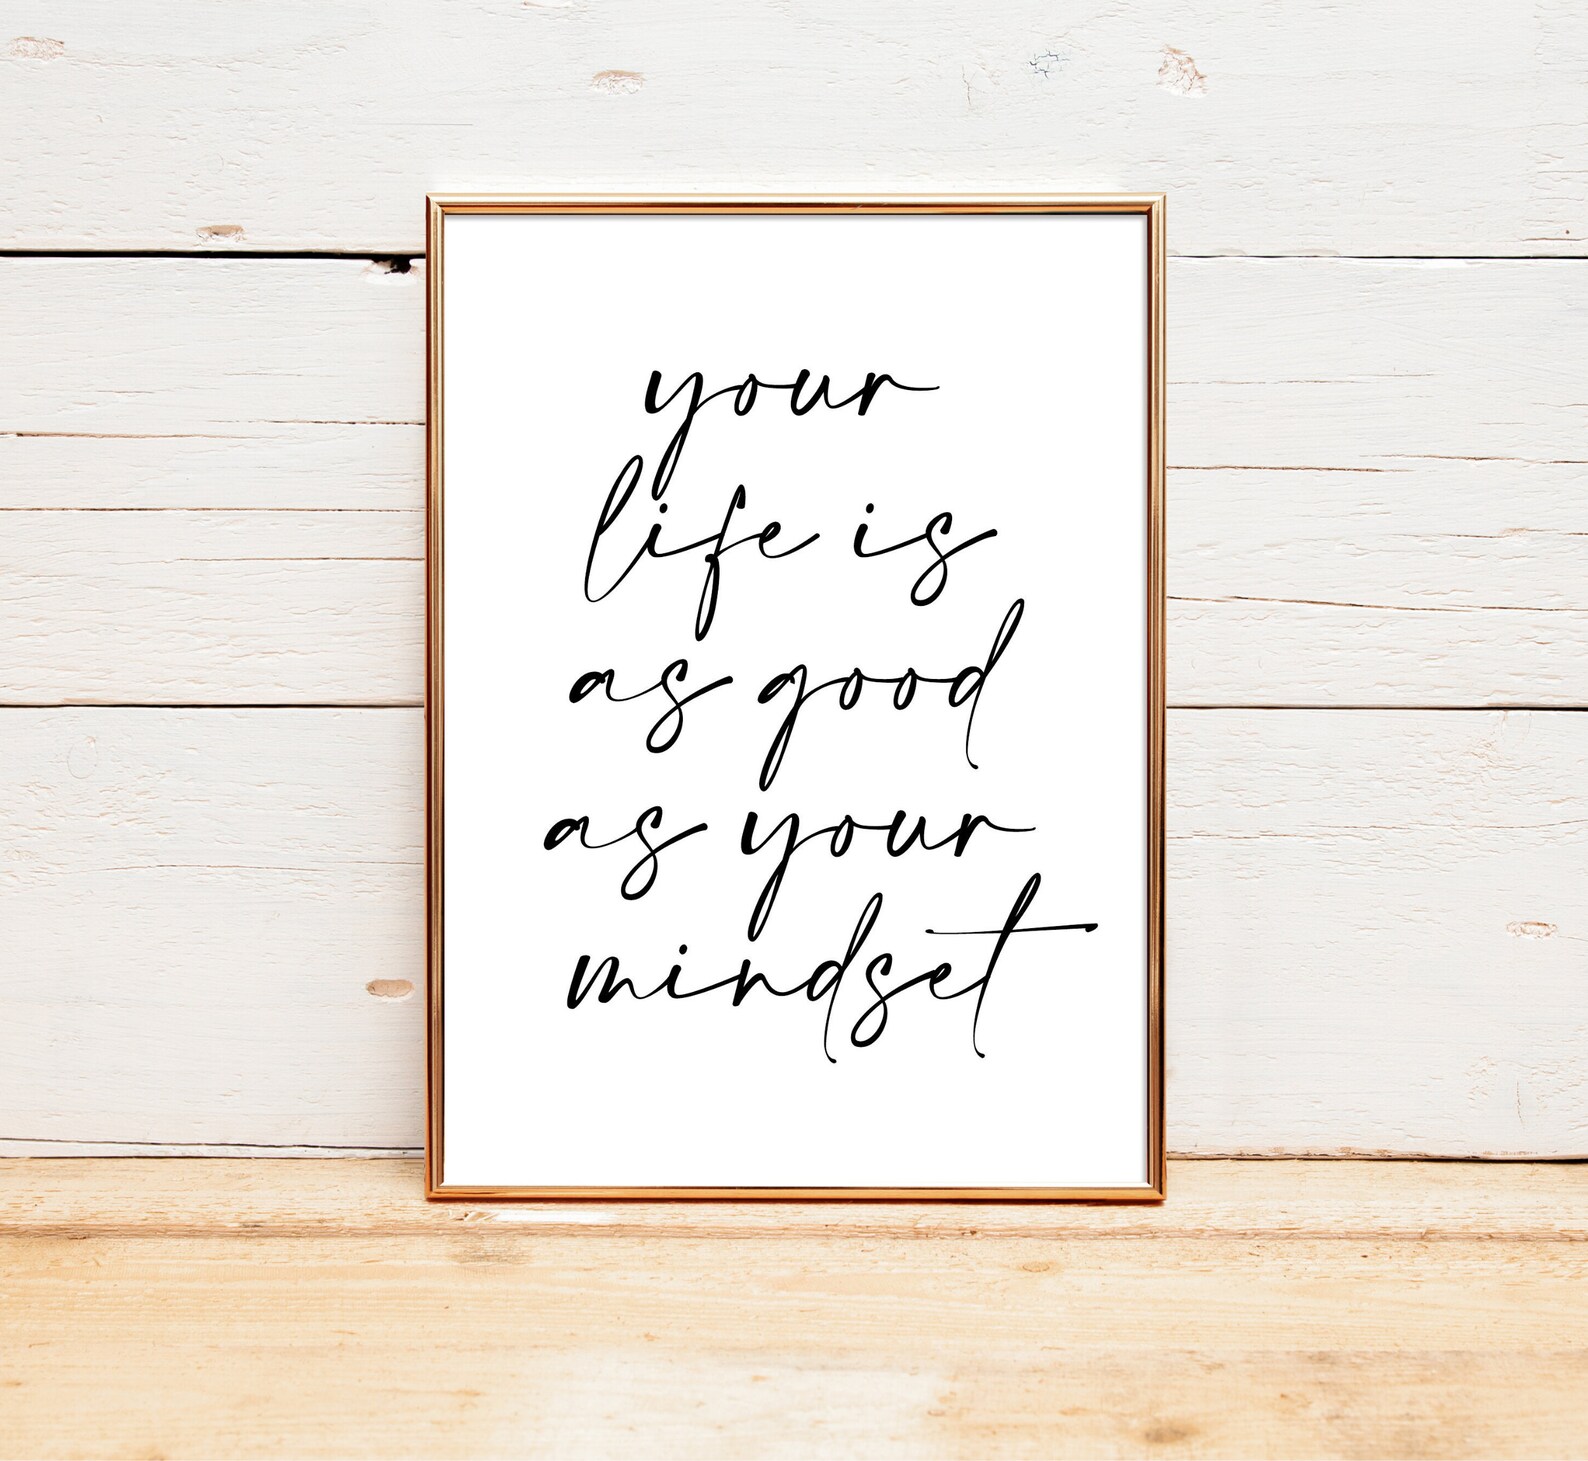 your
life is
as good
as your
mindset